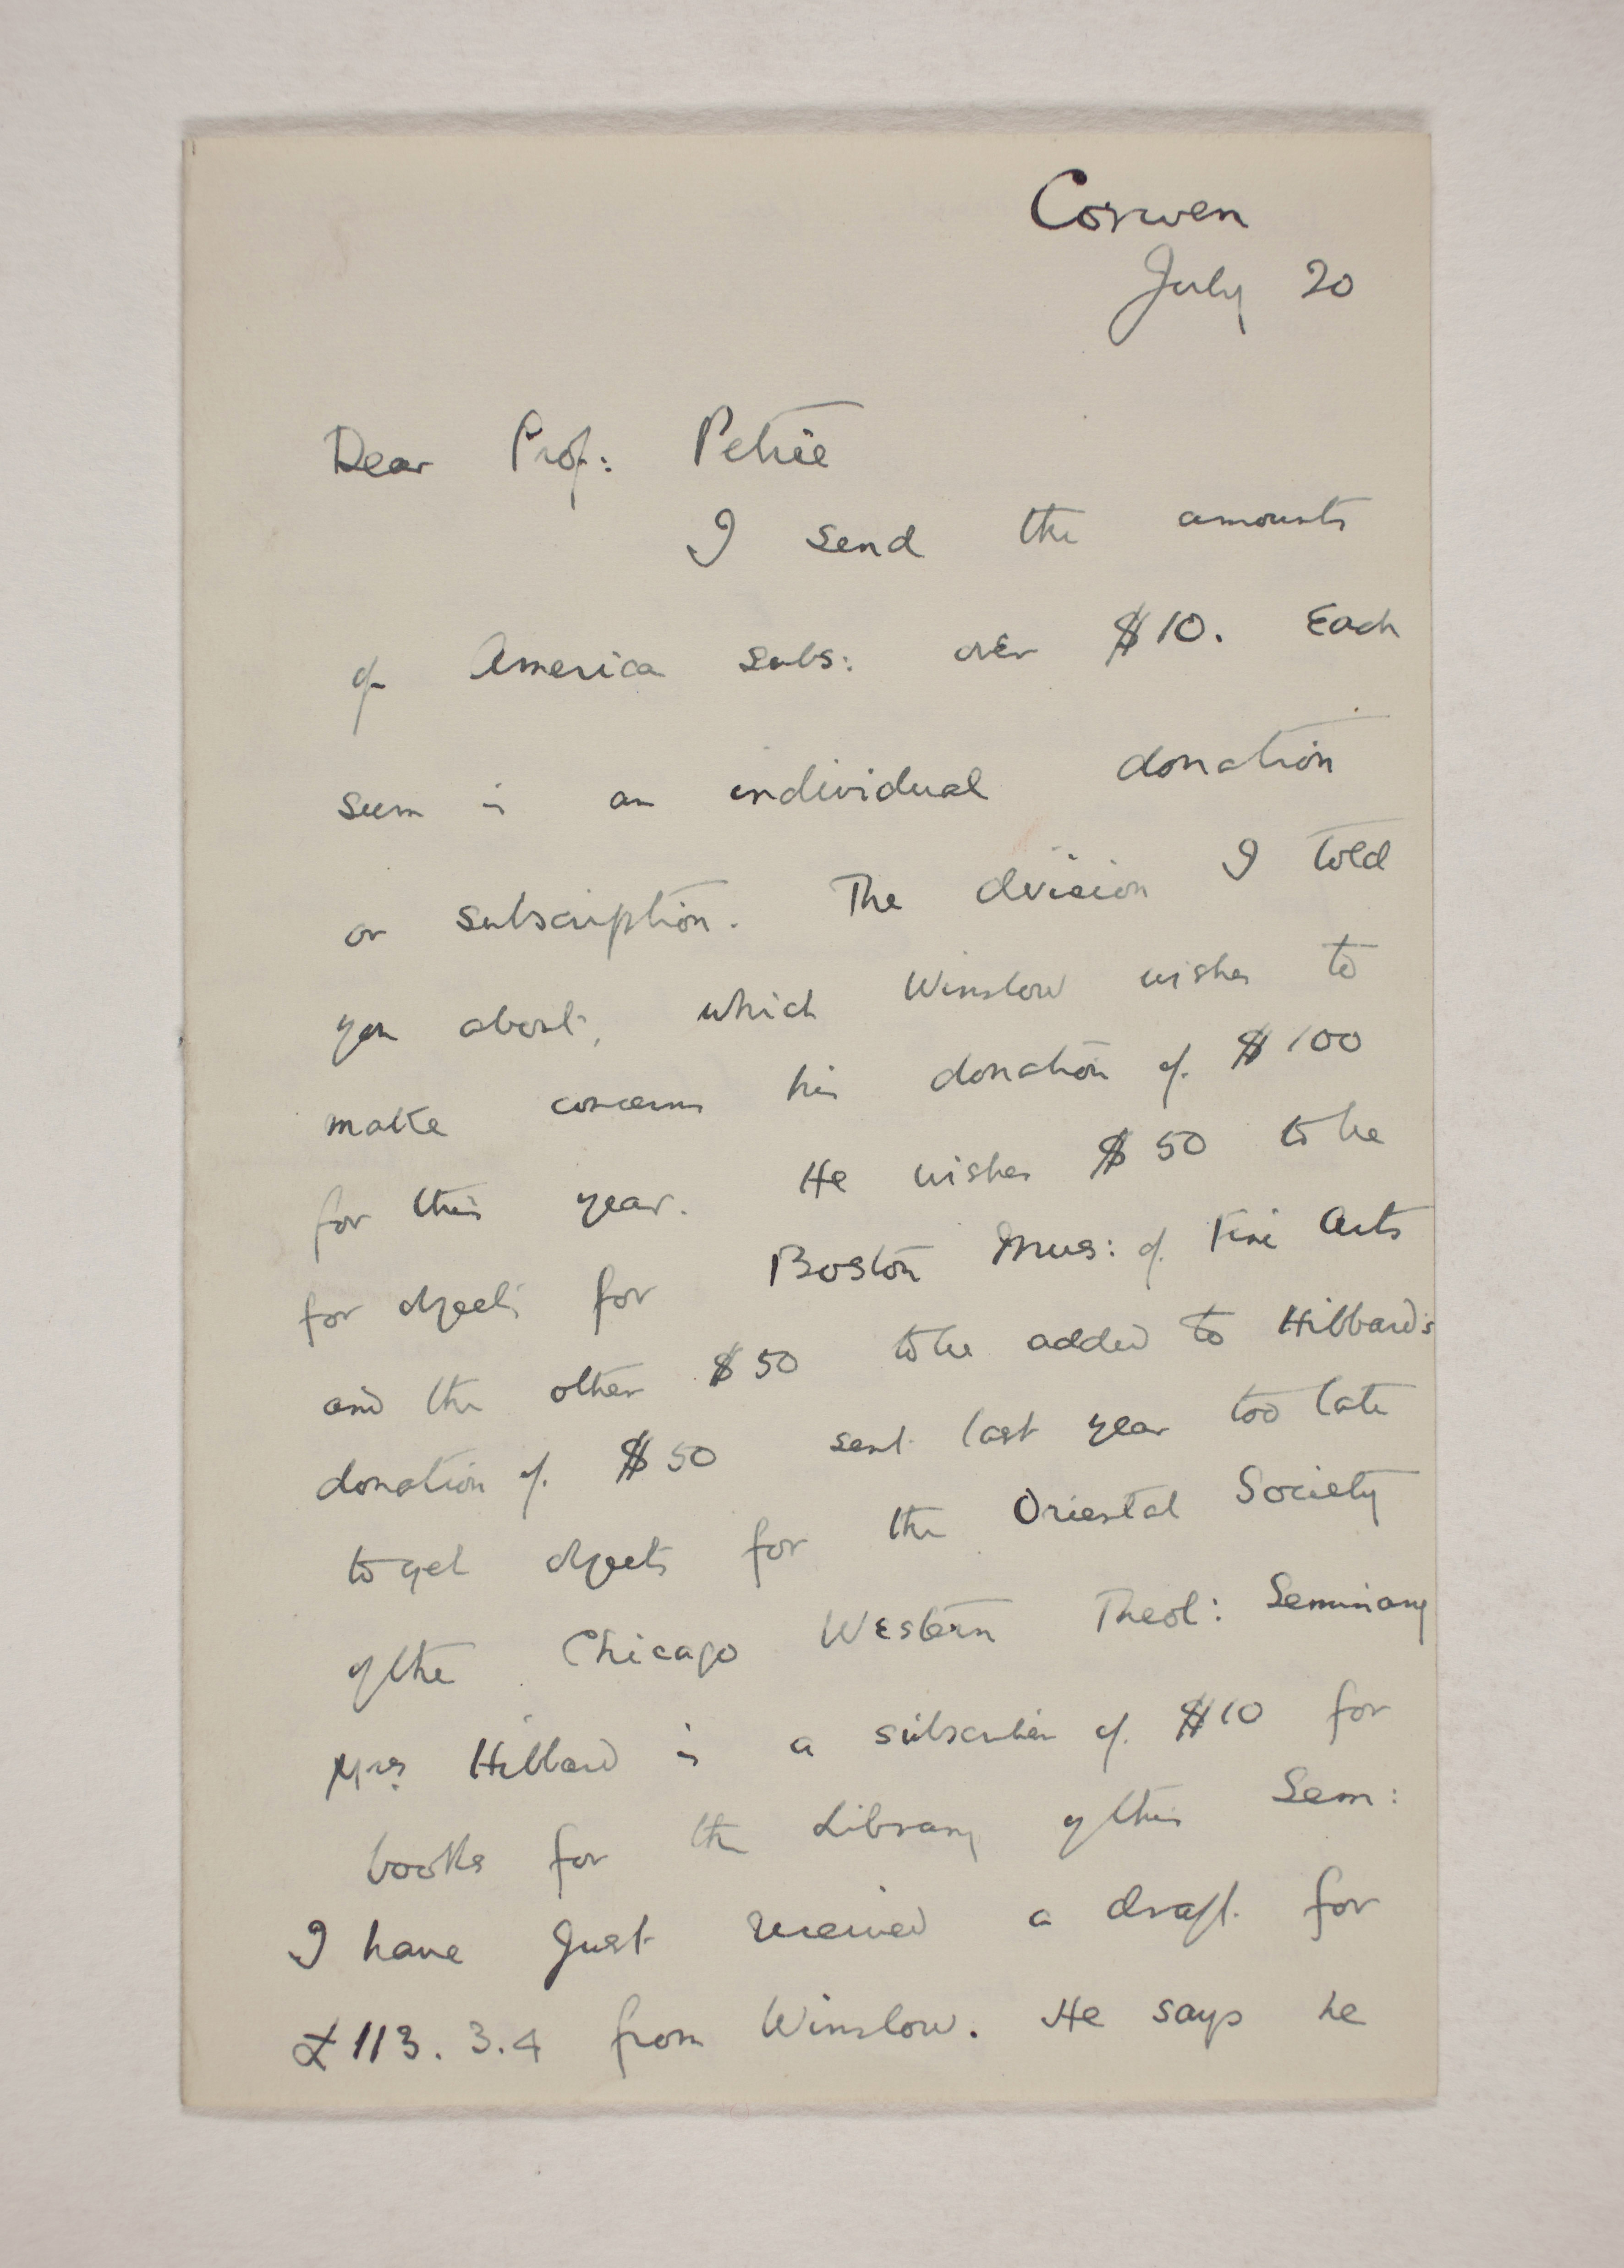 Corwen
July 20
Dear Prof: Petrie
I send the amounts
of America subs: over $10. Each
sum is an individual donation
or subscription. The division I told
you about, which Winslow wishes to
make concerns his donation of $100
for this year. He wishes $50 to be
for objects for Boston Mus: of Fine Arts
and the other $50 to be added to Hibbard's
donation of $50 sent last year too late
to get objects for the Oriental Society
of the Chicago Western Theol: Seminary
Mrs. Hibbard is a subscriber of $10 for
books for the Library of this Sem:
I have just received a draft for
£113.3.4 from Winslow. He says he